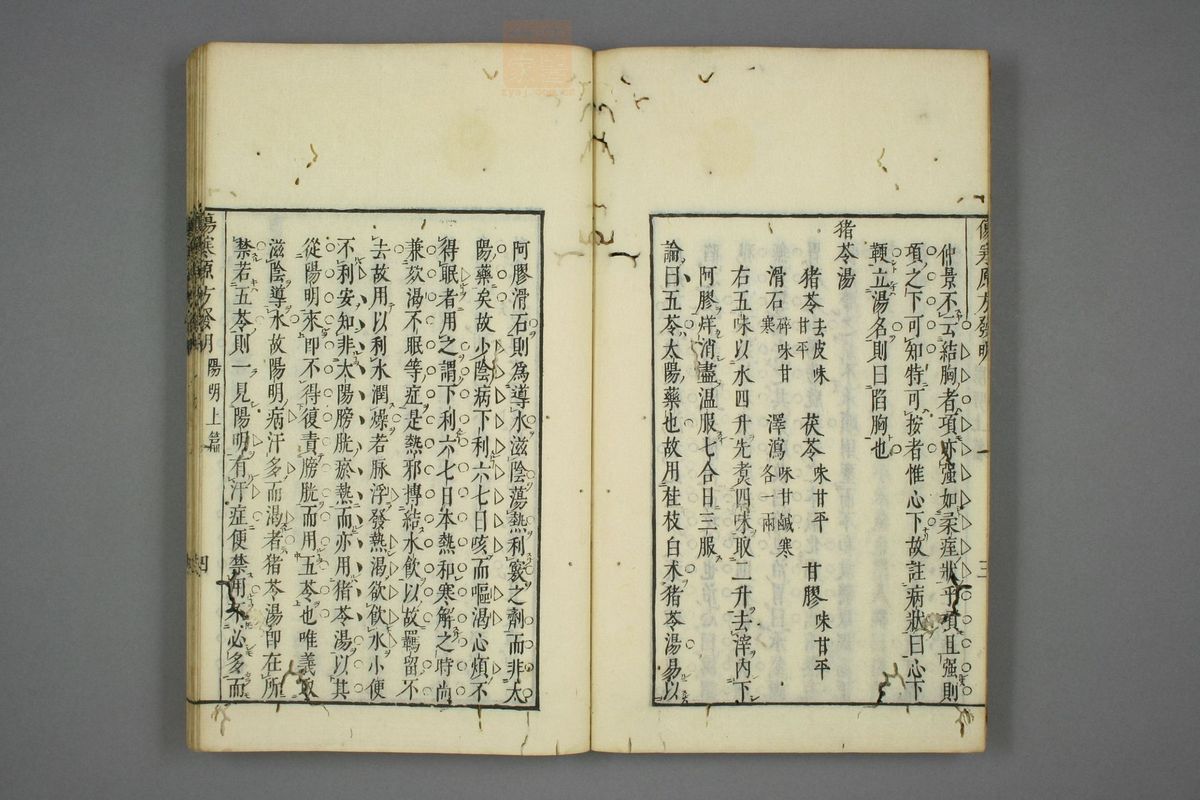 仲景不云結胸者項亦强如柔痓狀乎項且强則
項之下可知特可按者惟心下故註病狀曰心下
鞕立湯名則曰陷胸也
猪苓湯
猪苓 去皮味甘平 茯苓 味甘平 甘膠 味甘平
滑石 碎味甘寒 澤瀉 味甘鹹寒各一兩
右五味以水四升先煮四味取二升去滓內下
阿膠烊消盡温服七合日三服
論曰五苓太陽藥也故用桂枝白朮猪苓湯易以
傷寒原方發明 三
阿膠滑石則爲導水滋陰蕩熱利竅之劑而非太
陽藥矣故少陰病下利六七日咳而嘔渴心煩不
得眠者用之謂下利六七日本熱和寒解之時尚
兼欬渴不眠等症是熱邪搏結水飲以故羈留不
去故用以利水潤燥若脉浮發熱渴欲飲水小便
不利安知非太陽膀胱瘀熱而亦用猪苓湯以其
從陽明來即不得復責膀胱而用五苓也唯義取
滋陰導水故陽明病汗多而渴者猪苓湯即在所
禁若五苓則一見陽明有汗症便禁用不必多而
傷寒原方發明 陽明上篇 四